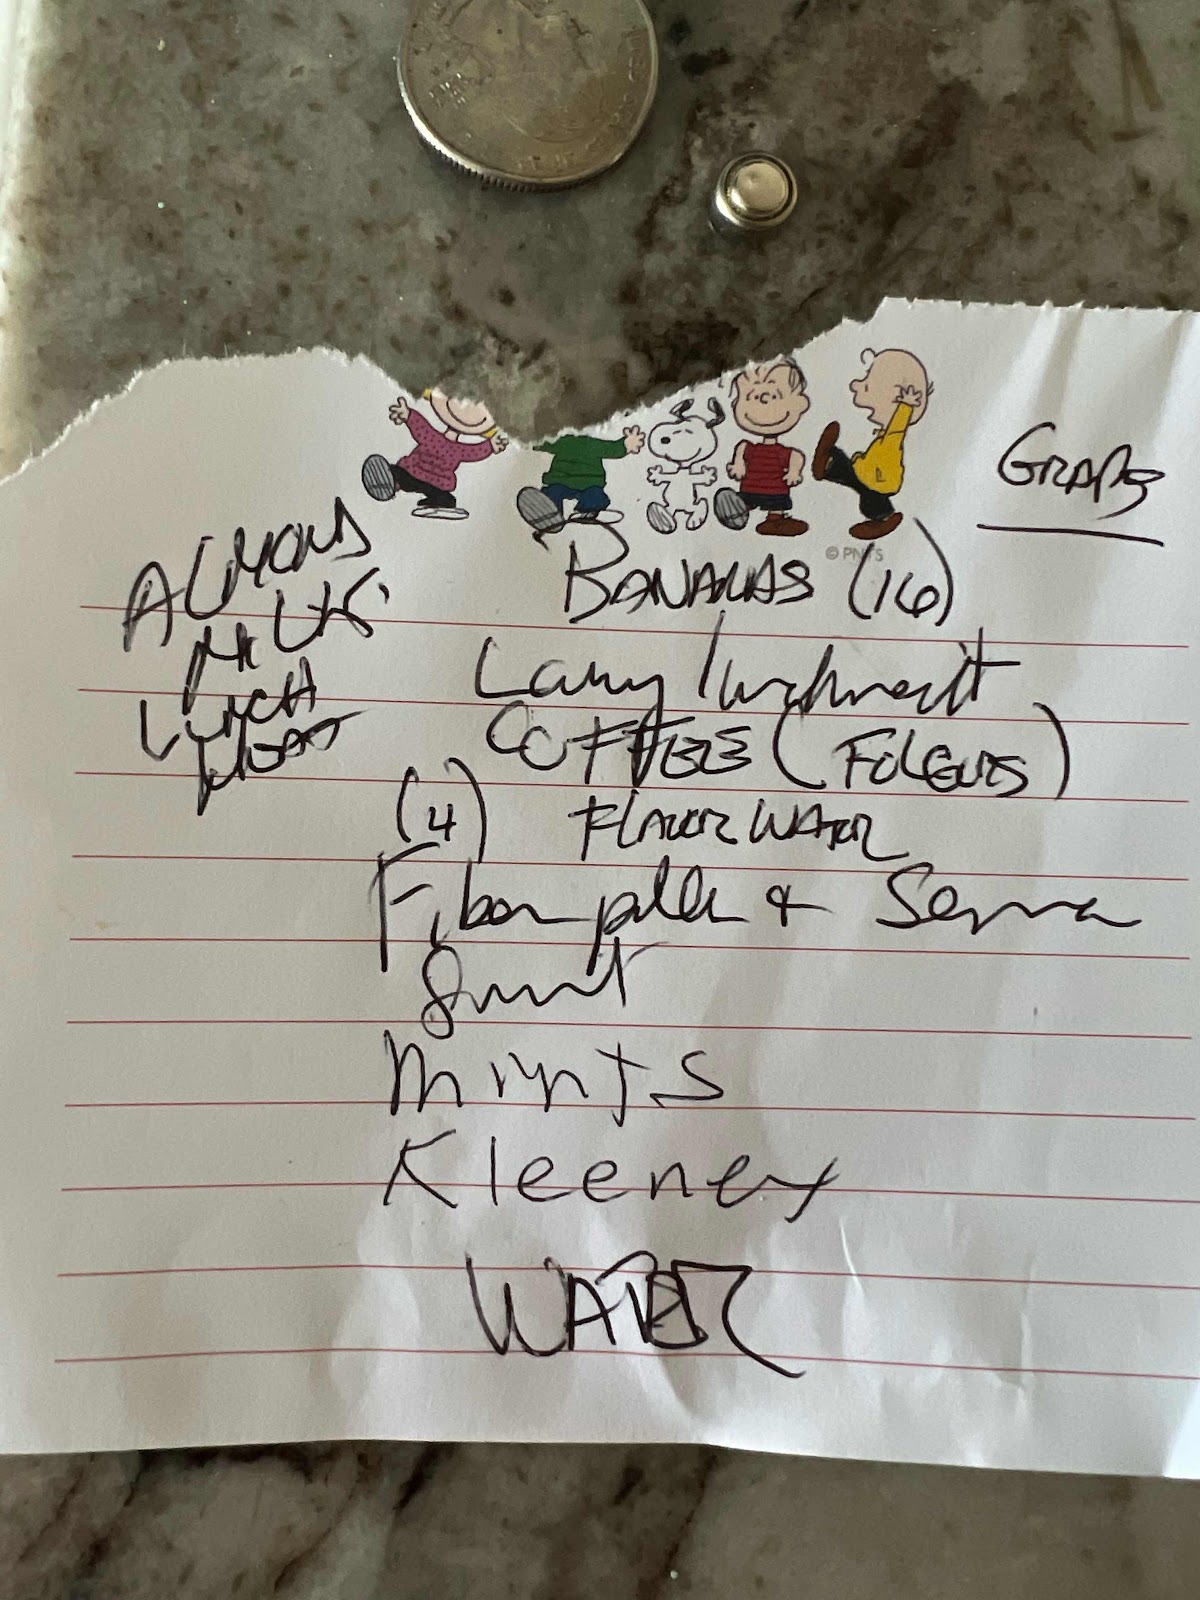 GRAPES
© PNTS
BANANAS (16)
ALMOND
MILK
LUNCH
MEAT
Larry lunchmeat
COFFEE (FOLGERS)
(4) FLAVOR WATER
Fiber pills & Senna
Mints
Kleenex
WATER